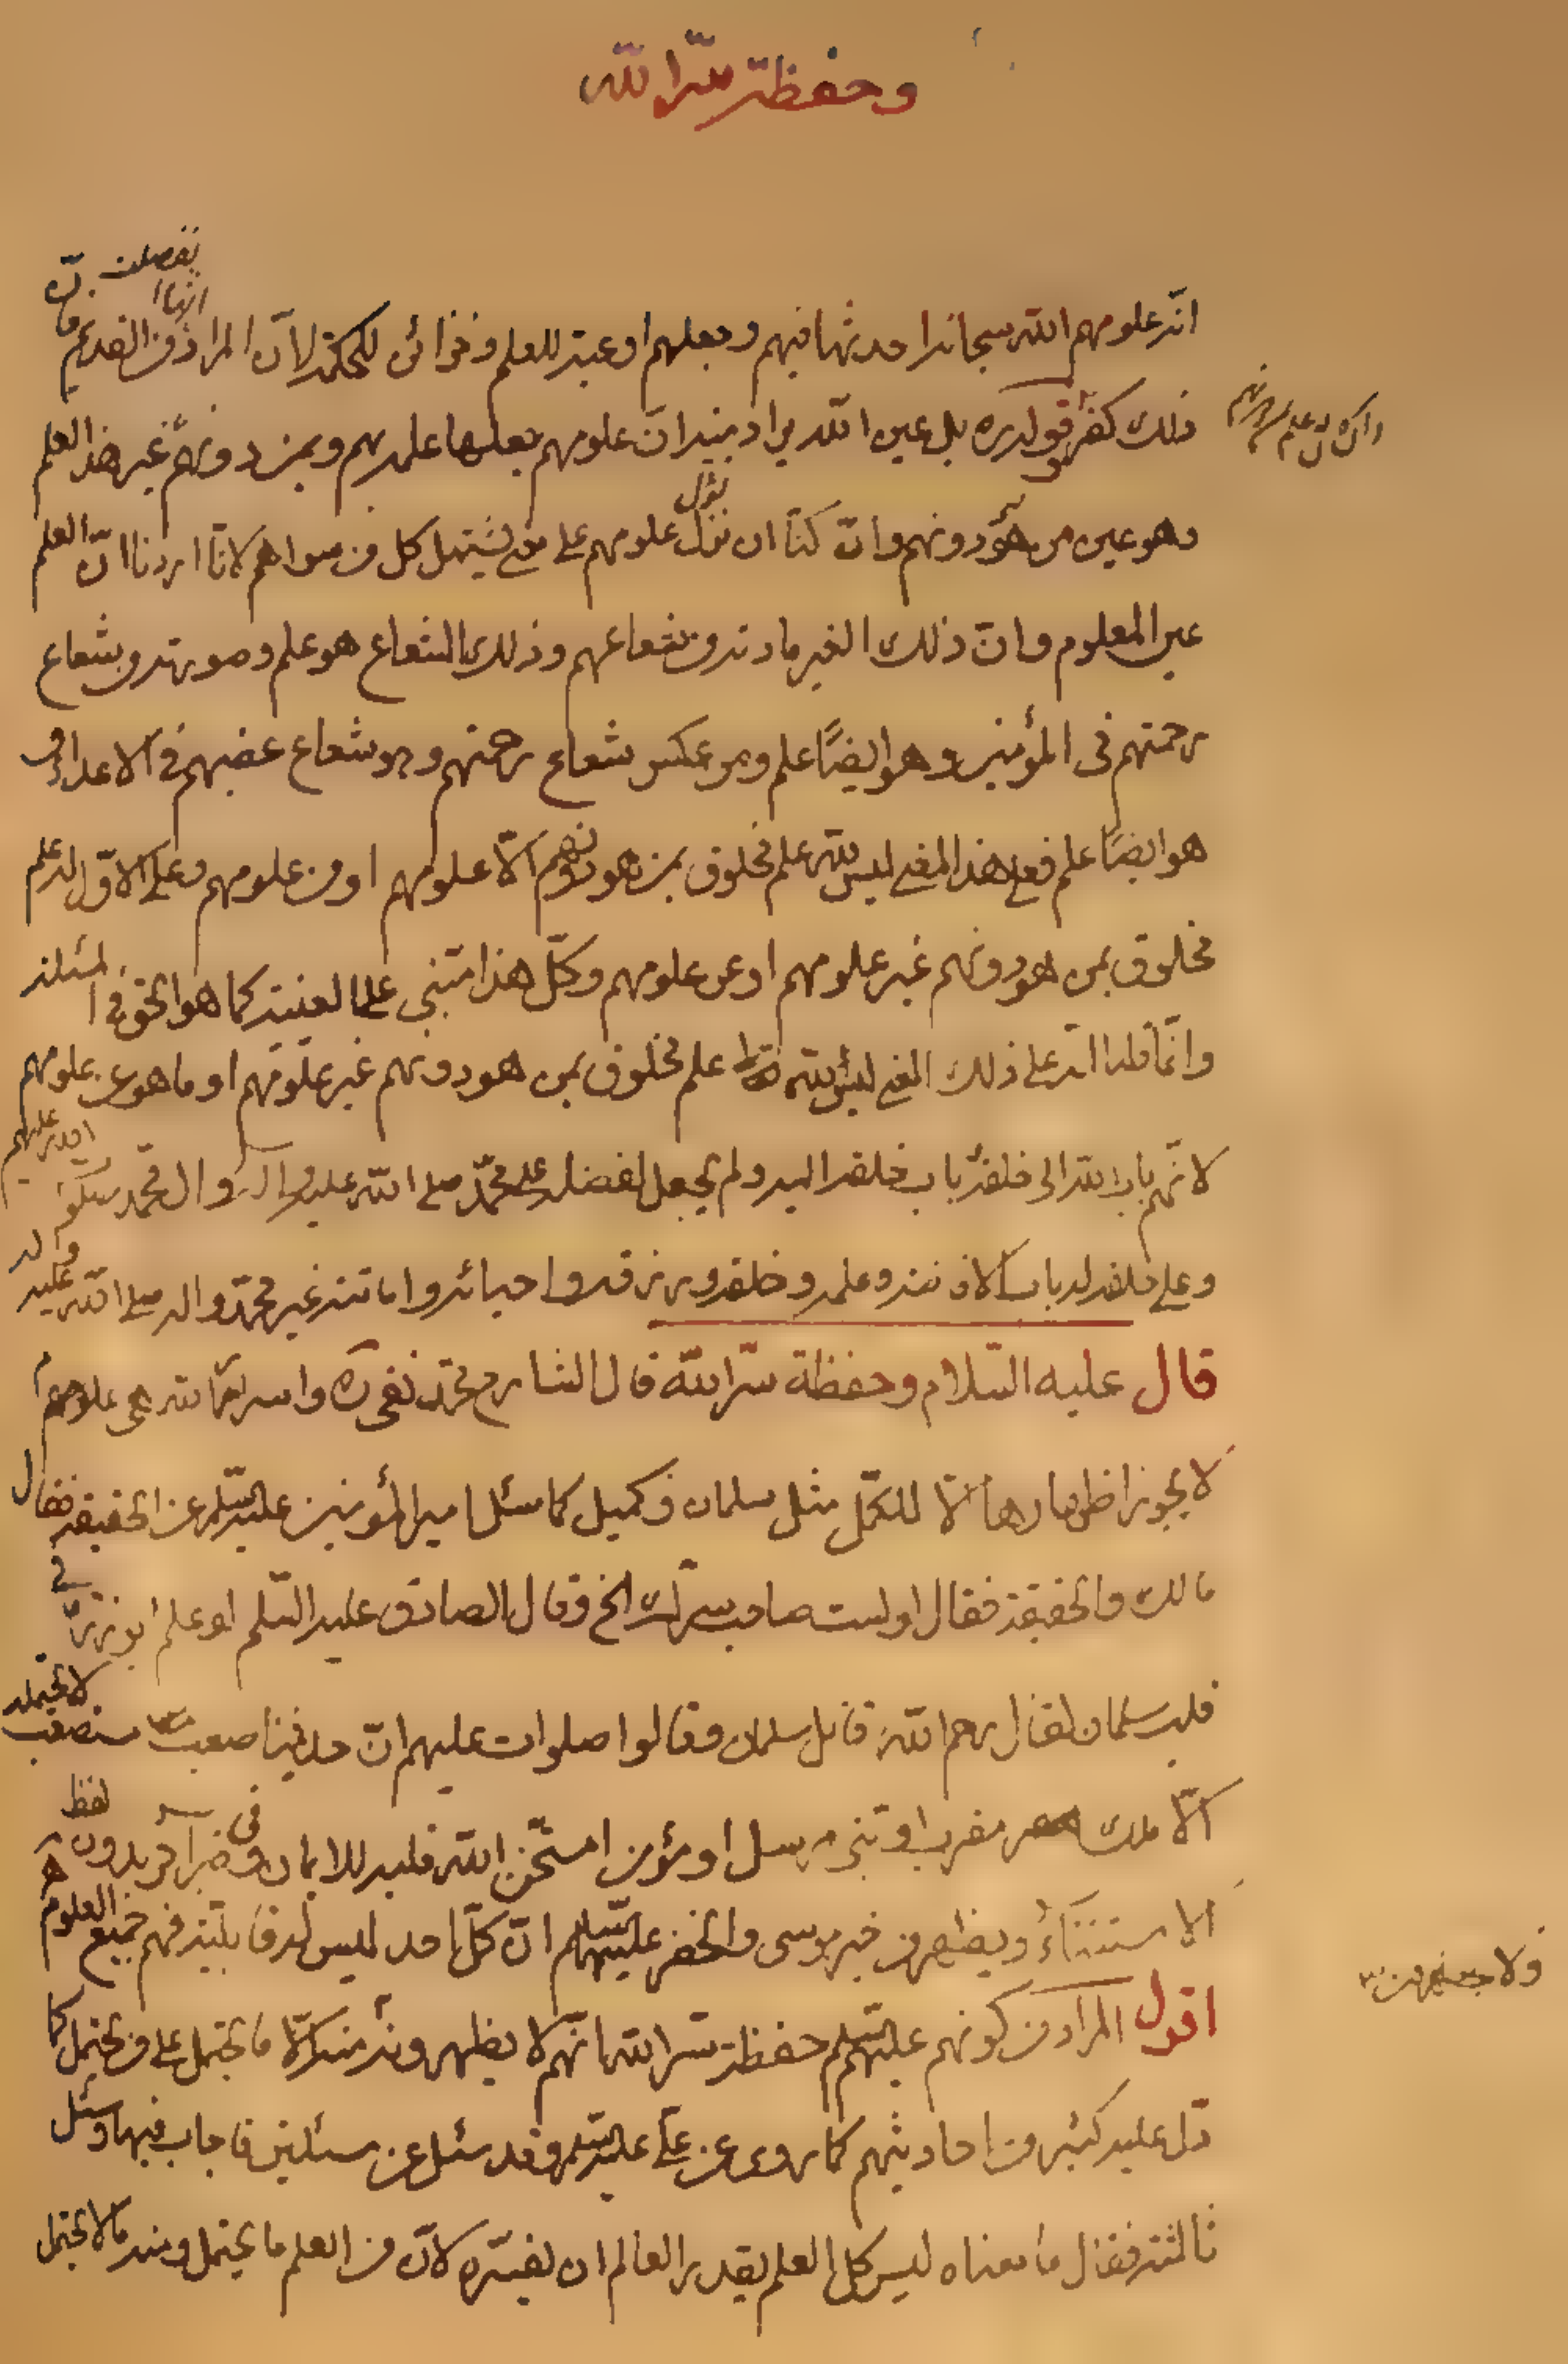 وحفظة سرّ الله
انّ علومهم الله سبحانه احدثها فيهم وجعلهم اوعية للعلم وخزائن للحكمة لا انّ المراد من القديم فانّ
ذلك كفر وقوله ره بل عين الله يراد منه ان علومهم بعلها علمه بهم وبمن دونهم غير هذا العلم
وهو عين من هو دونهم وان كنّا ان ننزل علومهم على معنى يشتمل كل من سواهم لانّا اردنا انّ العلم
عين المعلوم وانّ ذلك الغير مادته من شعاعهم وذلك الشعاع هو علم وصورته من شعاع
رحمتهم فى المؤمنين وهو ايضًا علم ومن عكس شعاع رحمتهم وهو شعاع غضبهم في الاعداء و
هو ايضًا علم فعلى هذا المعنى ليس لله علم مخلوق بمن هو دونهم الّا علومهم او من علومهم وعلى الاوّل له علم
مخلوق بمن هو دونهم غير علومهم او عن علومهم وكلّ هذا مبتنى على العينية كما هو الحق فى المسئلة
وانّما قلنا انّه على ذلك المعنى ليس لله علم مخلوق بمن هو دونهم غير علومهم او ما هو عن علومهم
لانّهم باب الله الى خلقه وباب خلقه اليه ولم يجعل لفضله على محمّد صلى الله عليه وآله وال محمد
وعلى خلقه له باب الا من منه وعلمه وخلقه ورزقه واحيائه واماتته غير محمّد واله صلى الله عليه واله
قال عليه السّلام وحفظة سرّ الله قال الشارح محمّد تقى ره واسرار الله هى علوم
لا يجوز اظهارها الّا للكمّل مثل سلمان وكميل كما سئل امير المؤمنين عليه السّلم عن الحقيقة فقال
مالك والحقيقة فقال اولست صاحب سرّك الخ وقال الصادق عليه السّلم لو علم ابوذر ما فى
قلب سلمان لقال رحم الله قاتل سلمان وقالوا صلوات عليهم انّ حديثنا صعب مستصعب لا يحتمله
الّا ملك مقرب او نبى مرسل او مؤمن امتحن الله قلبه للايمان وفى خبر آخر بدون لفظ
الاستثناء ويظهر من خبر موسى والخضر عليهما السّلم انّ كلّ احد ليس له قابلية فهم جميع العلوم
ولا جميعهم من
اقول المراد من كونهم عليهم السّلم حفظة سرّ الله انّهم لا يظهرون منه الّا ما يحتمل على من يحتمل كما
دلّ عليه كثير من احاديثهم كما روى عن علىّ عليه السّلم وقد سئل عن مسئلتين فاجاب فيها وسئل
ثالثة فقال ما معناه ليس كل العلم يقدر العالم ان يفسّره لانّ من العلم ما يحتمل ومنه ما لا يحتمل